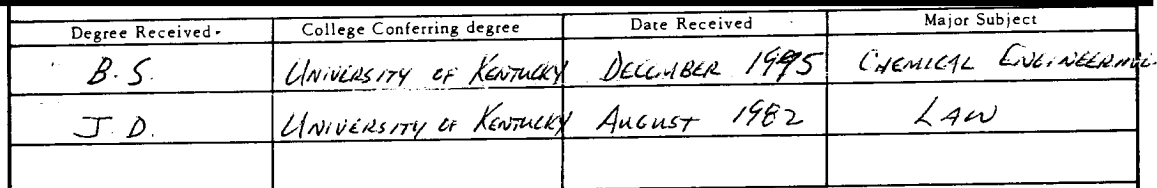 Degree Received- College Conferring degree Date Received Major Subject
B.S. UNIVERSITY OF KENTUCKY DECEMBER 1995 CHEMICAL ENGINEERING
J.D. UNIVERSITY OF KENTUCKY AUGUST 1982 LAW